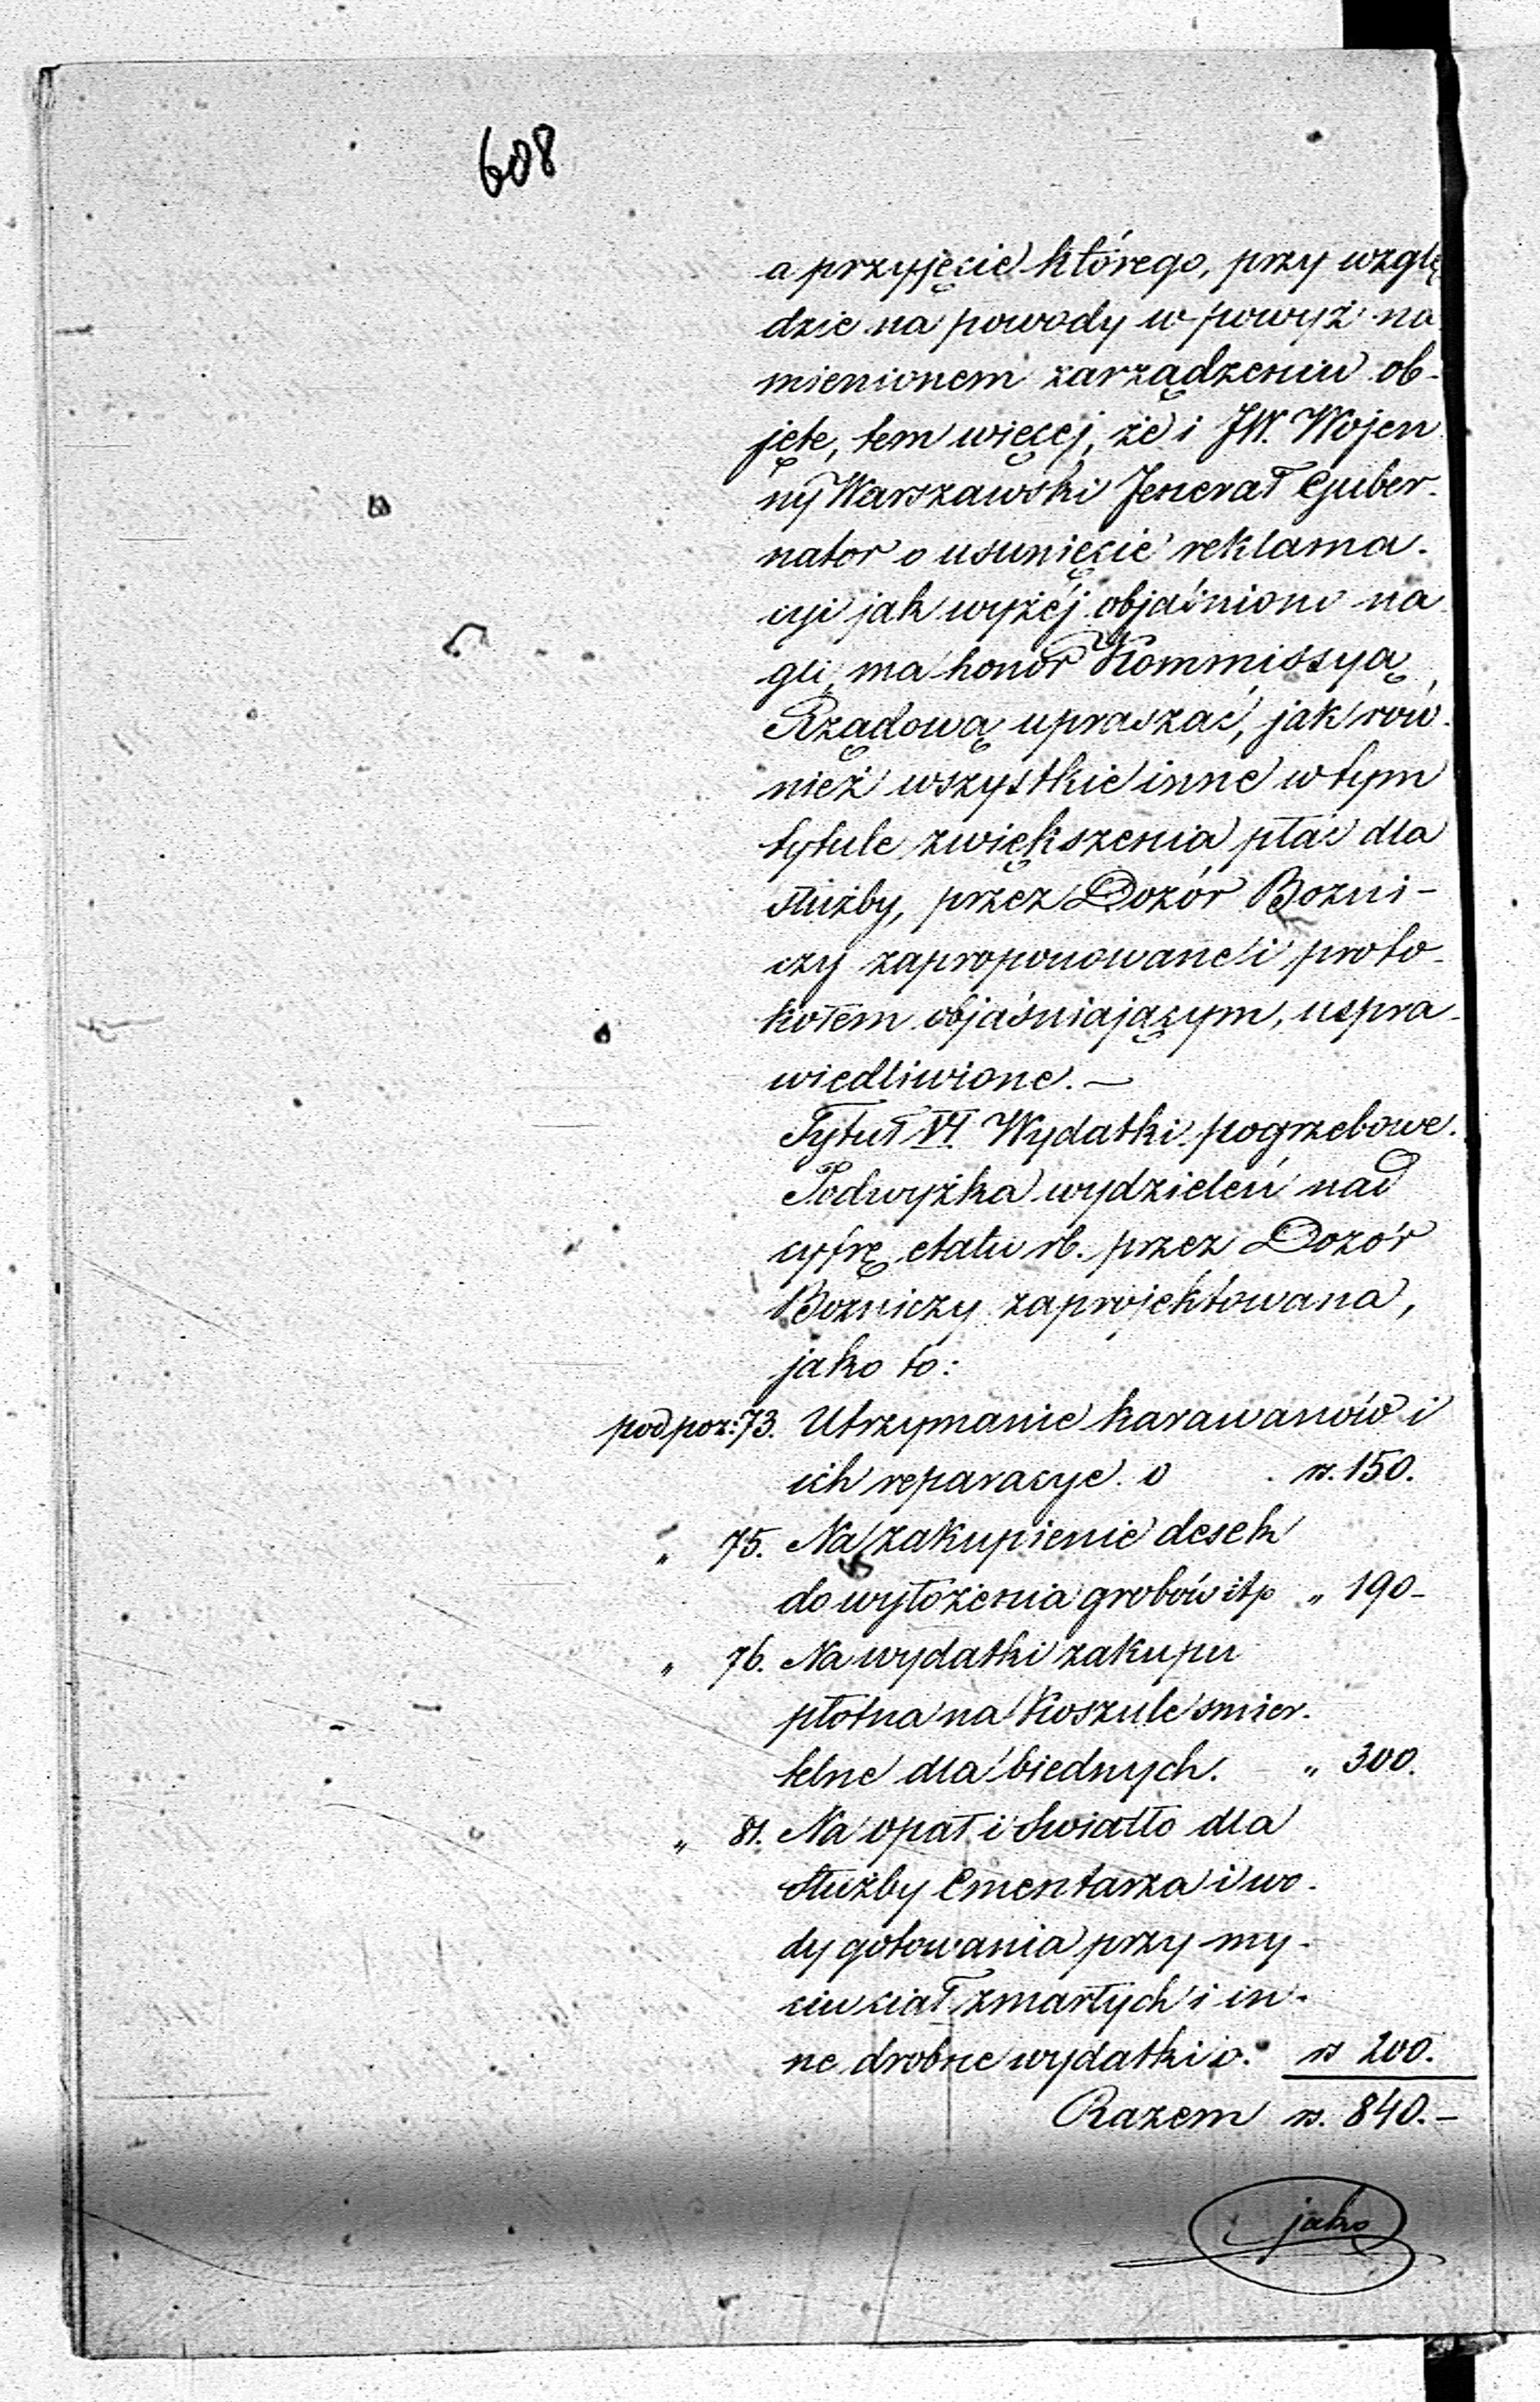 608
a przyjęcie którego, przy wzglę
dzie na powody w powyż na
mienionem zarządzeniu ob-
jęte, tem więcej, że i JW. Wojen
ny Warszawski Jenerał Guber-
nator o usunięcie reklama-
cyi jak wyżej objaśniono na
gli, ma honor Kommissyą
Rządową upraszać, jak rów-
nież wszystkie inne w tym
tytule zwiększenia płac dla
służby, przez Dozór Bozni-
czy zaproponowane i proto-
kołem objaśniającym, uspra-
wiedliwione. —
Tytuł VI. Wydatki pogrzebowe.
Podwyżka wydzieleń nad
cyfrę etatu rb. przez Dozór
Bozniczy zaprojektowana,
jako to:
pod poz: 73. Utrzymanie karawanów i
ich reparacye o rs. 150.
" 75. Na zakupienie desek
do wyłożenia grobów itp " 190-
" 76. Na wydatki zakupu
płótna na Koszule smier-
telne dla biednych. " 300.
" 81. Na opał i Swiatło dla
służby Cmentarza i wo-
dy gotowania przy my-
ciu ciał zmarłych i in-
ne drobne wydatki o. rs 200.
Razem rs. 840.-
jako